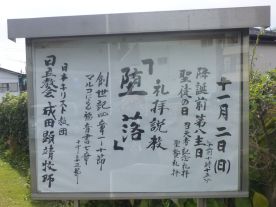 十一月二日(日)
降誕前第八主日
聖徒の日
召天者記念礼拝
聖餐礼拝
礼拝説教
「堕落」
創世記四章一〜十節
マルコによる福音書七章
日本キリスト教団
日立教会 成田顕靖牧師